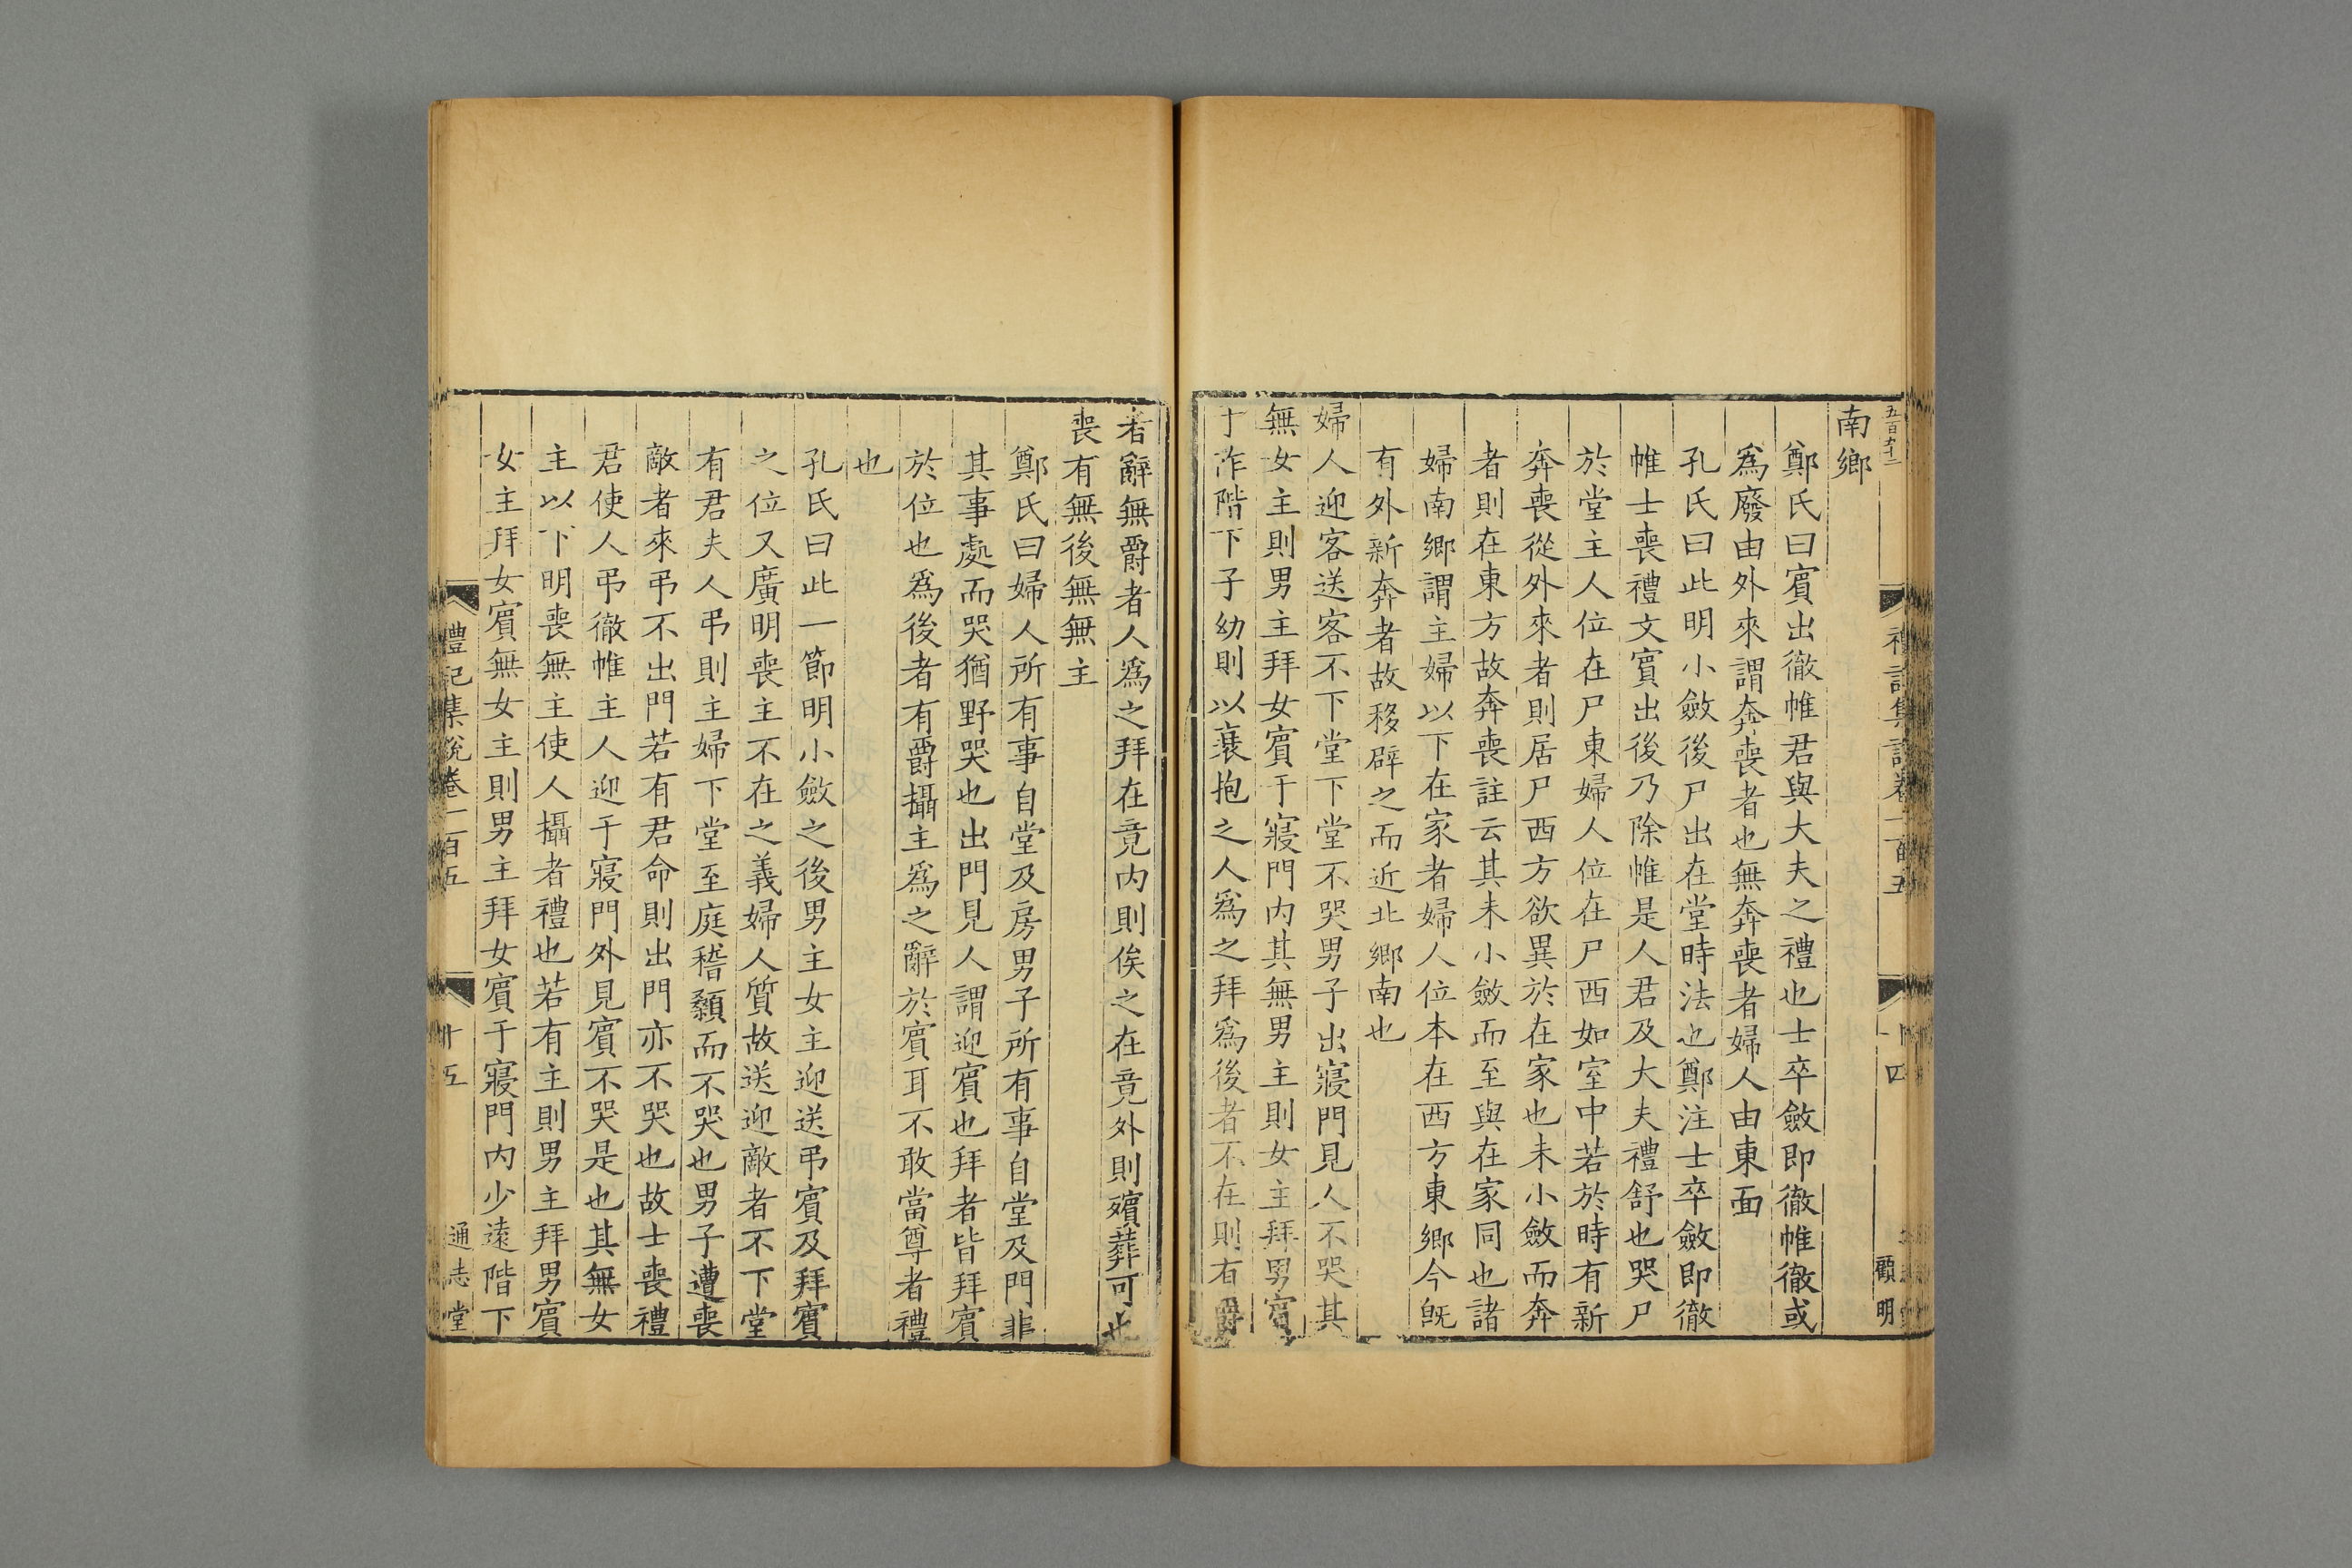 南鄉
鄭氏曰賓出徹帷君與大夫之禮也士卒斂即徹帷徹或
爲廢由外來謂奔喪者也無奔喪者婦人由東面
孔氏曰此明小斂後尸出在堂時法也鄭注士卒斂即徹
帷士喪禮文賓出後乃除帷是人君及大夫禮舒也哭尸
於堂主人位在尸東婦人位在尸西如室中若於時有新
奔喪從外來者則居尸西方欲異於在家也未小斂而奔
者則在東方故奔喪註云其未小斂而至與在家同也諸
婦南鄉謂主婦以下在家者婦人位本在西方東鄉今旣
有外新奔者故移辟之而近北鄉南也
婦人迎客送客不下堂下堂不哭男子出寢門見人不哭其
無女主則男主拜女賓于寢門內其無男主則女主拜男賓
于阼階下子幼則以衰抱之人爲之拜爲後者不在則有爵
者辭無爵者人爲之拜在竟內則俟之在竟外則殯葬可也
喪有無後無無主
鄭氏曰婦人所有事自堂及房男子所有事自堂及門非
其事處而哭猶野哭也出門見人謂迎賓也拜者皆拜賓
於位也爲後者有爵攝主爲之辭於賓耳不敢當尊者禮
也
孔氏曰此一節明小斂之後男主女主迎送弔賓及拜賓
之位又廣明喪主不在之義婦人質故送迎敵者不下堂
有君夫人弔則主婦下堂至庭稽顙而不哭也男子遭喪
敵者來弔不出門若有君命則出門亦不哭也故士喪禮
君使人弔徹帷主人迎于寢門外見賓不哭是也其無女
主以下明喪無主使人攝者禮也若有主則男主拜男賓
女主拜女賓無女主則男主拜女賓于寢門內少遠階下
禮記集說卷一百五
十五
通志堂